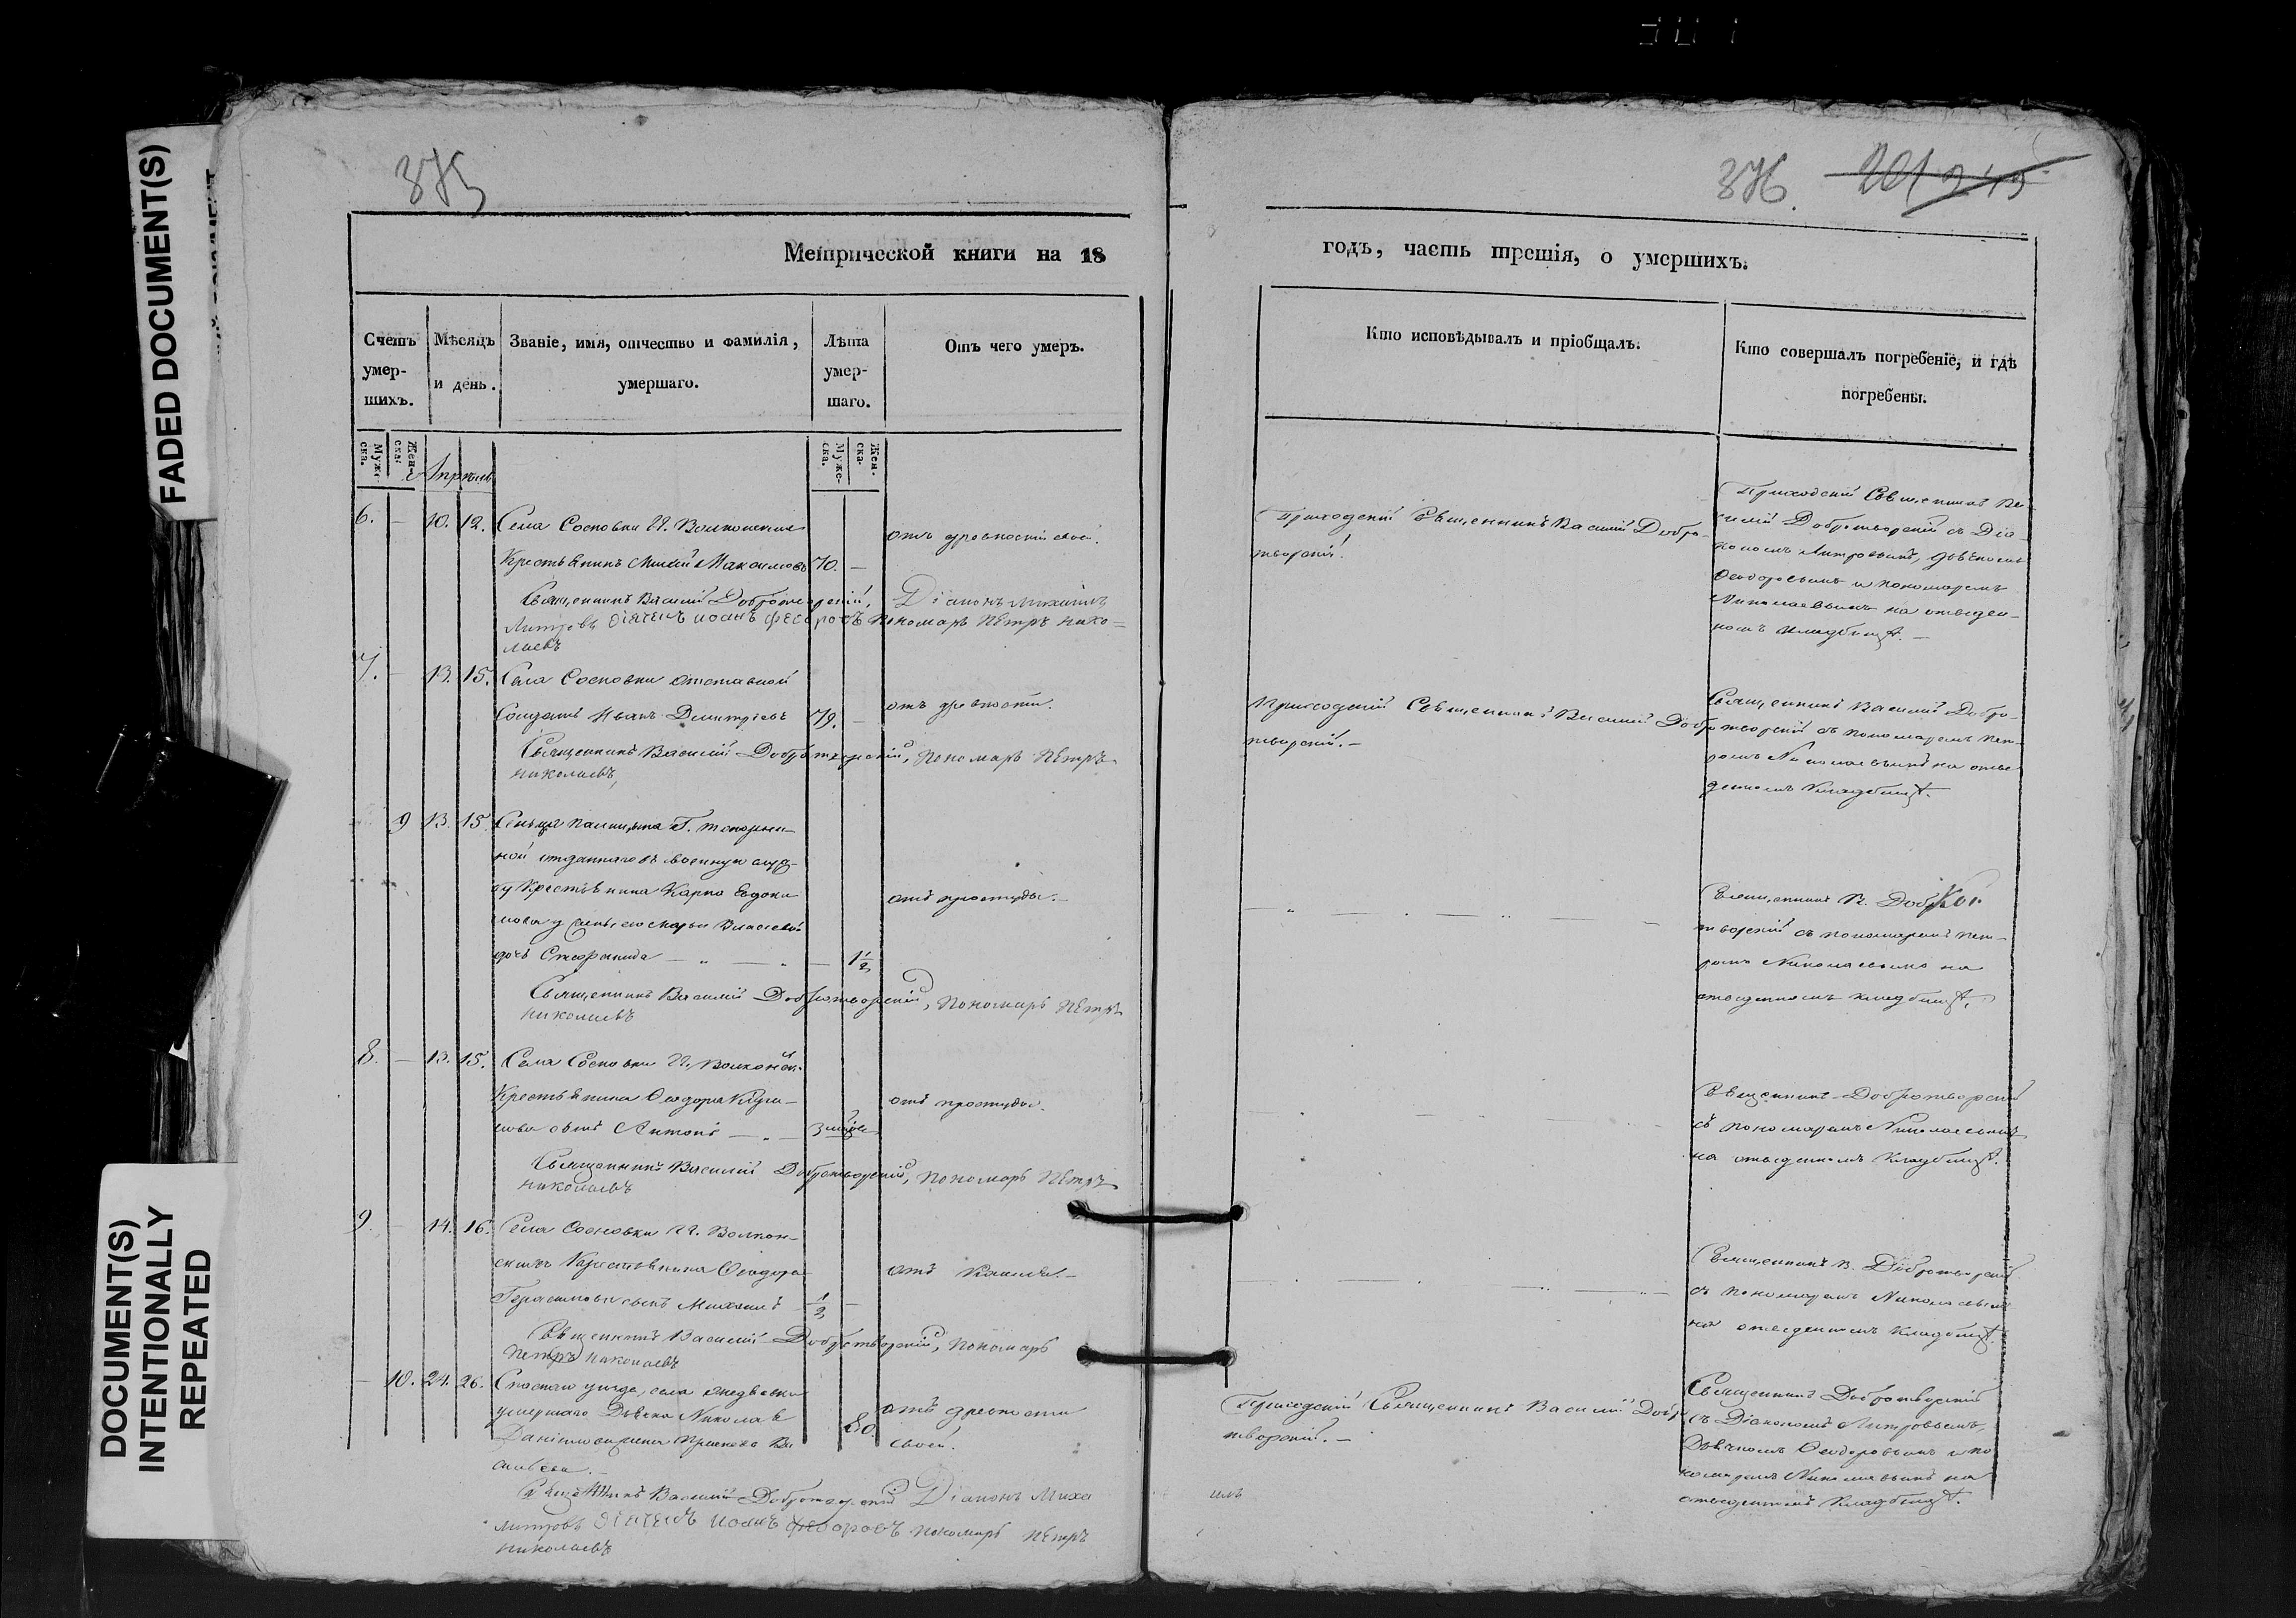 FADED DOCUMENT(S)
DOCUMENT(S)
INTENTIONALLY
REPEATED
375
376.
201
245
Метрической книги на 18
годъ, часть третія, о умершихъ.
Счетъ умер-шихъ.
Мѣсяцъ и день.
Званіе, имя, отчество и фамилія, умершаго.
Лѣта умер-шаго.
Отъ чего умеръ.
Кто исповѣдывалъ и пріобщалъ.
Кто совершалъ погребеніе, и гдѣ погребены.
Муже-ска.
Жен-ска.
Муже-ска.
Жен-ска.
Апрель
6. — 10. 12. Села Сосновки
Крестьянинъ Максимовъ 70. —
отъ древности своей.
Священникъ Василий Добротворский, Діаконъ Михаилъ
Митровъ діячекъ иоанъ федоровъ пономарь пЕтръ нико=
лаевъ
Приходский Священникъ Василий Добро-
творский.
Приходский Священникъ Ва-
силий Добротворский съ Діа-
кономъ Митровымъ, дьячкомъ
Феодоровымъ и пономаремъ
Николаевымъ на отведен-
номъ кладбищѣ. —
7. — 13. 15. Села Сосновки отставной
Солдатъ Иванъ Димитріевъ 79. —
отъ древности.
Священникъ Василий Добротворский, пономарь пЕтръ
николаевъ,
Приходский Священникъ Василий Добро-
творский. —
Священникъ Василий Добро-
творский съ пономаремъ Пет-
ромъ Николаевымъ на отве-
денномъ кладбищѣ.
9 13. 15.
ной отданнаго въ военную служ-
бу Крестьянина Карпа Евдоки-
мова
дочь Стефанида — 1 1/2
отъ простуды. —
Священникъ Василий Добротворский, пономарь пЕтръ
николаевъ
Священникъ В. Добро-
творский съ пономаремъ Пет-
ромъ Николаевымъ на
отведенномъ кладбищѣ.
8. — 13. 15. Села Сосновки
Крестьянина Феодора
сынъ Антонъ — 3
отъ простуды.
Священникъ Василий Добротворский, пономарь пЕтръ
николаевъ
Священникъ Добротворский
съ пономаремъ Николаевымъ
на отведенномъ кладбищѣ.
9. — 14. 16. Села Сосновки Волкон-
скихъ Крестьянина Феодора
Герасимова сынъ Михаилъ 1/2 —
отъ кашля. —
Священникъ Василий Добротворский, пономарь
пЕтръ николаевъ
Священникъ В. Добротворский
съ пономаремъ Николаевымъ
на отведенномъ кладбищѣ.
— 10. 24. 26. Спасскаго уезда, села
умершаго Дьячка Николая
Данилова жена Прасковья Ва-
сильева. — 80.
отъ древности
своей.
Священникъ Василий Добротворский Діаконъ Миха
илъ
Митровъ діячекъ иоанъ федоровъ пономарь пЕтръ
николаевъ
Приходский Священникъ Василий Добро-
творский. —
Священникъ Добротворский
съ Діакономъ Митровымъ,
Дьячкомъ Феодоровымъ и по-
номаремъ Николаевымъ на
отведенномъ кладбищѣ.